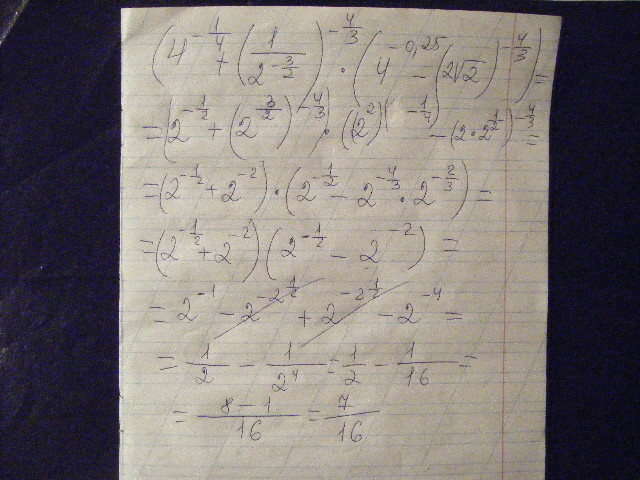 (4^{-\frac{1}{4}} + (\frac{1}{2^{-\frac{3}{2}}})^{-\frac{4}{3}}) · (4^{-0,25} - (2\sqrt{2})^{-\frac{4}{3}}) =
= (2^{-\frac{1}{2}} + (2^{\frac{3}{2}})^{-\frac{4}{3}}) · ((2^2)^{-\frac{1}{4}} - (2·2^{\frac{1}{2}})^{-\frac{4}{3}}) =
= (2^{-\frac{1}{2}} + 2^{-2}) · (2^{-\frac{1}{2}} - 2^{-\frac{4}{3}} · 2^{-\frac{2}{3}}) =
= (2^{-\frac{1}{2}} + 2^{-2}) (2^{-\frac{1}{2}} - 2^{-2}) =
= 2^{-1} - 2^{-2\frac{1}{2}} + 2^{-2\frac{1}{2}} - 2^{-4} =
= \frac{1}{2} - \frac{1}{2^4} = \frac{1}{2} - \frac{1}{16} =
= \frac{8-1}{16} = \frac{7}{16}